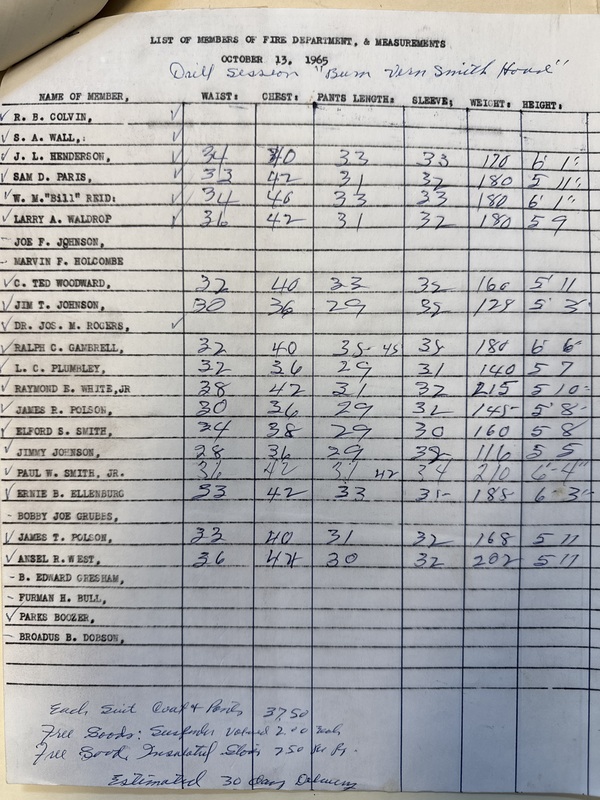 LIST OF MEMBERS OF FIRE DEPARTMENT, & MEASUREMENTS
OCTOBER 13, 1965
Drill Session "Burn Vern Smith House"
NAME OF MEMBER, WAIST: CHEST: PANTS LENGTH: SLEEVE; WEIGHT: HEIGHT:
✓ R. B. COLVIN, ✓
✓ S. A. WALL, ✓
✓ J. L. HENDERSON, ✓ 34 40 33 33 170 6' 1"
✓ SAM D. PARIS, ✓ 33 42 31 32 180 5 11"
✓ W. M."Bill" REID: ✓ 34 46 33 33 180 6' 1"
✓ LARRY A. WALDROP ✓ 36 42 31 32 180 5 9
- JOE F. JOHNSON,
- MARVIN F. HOLCOMBE
✓ C. TED WOODWARD, 32 40 33 32 160 5' 11
✓ JIM T. JOHNSON, 30 36 29 32 129 5' 3"
✓ DR. JOS. M. ROGERS, ✓
✓ RALPH C. GAMBRELL, 32 40 35 - 45 35 180 6' 6"
✓ L. C. PLUMBLEY, 32 36 29 31 140 5 7
✓ RAYMOND E. WHITE,JR 38 42 31 32 215 5 10"
✓ JAMES R. POLSON, 30 36 29 32 145 5' 8"
✓ ELFORD S. SMITH, 34 38 29 30 160 5 8
✓ JIMMY JOHNSON, 28 36 29 32 116 5 5
✓ PAUL W. SMITH, JR. 36 42 42 34 210 6'-4"
✓ ERNIE B. ELLENBURG 33 42 33 35 188 6 3"
- BOBBY JOE GRUBBS,
✓ JAMES T. POLSON, 33 40 31 32 168 5 11
✓ ANSEL R.WEST, 36 44 30 32 202 5 11
- B. EDWARD GRESHAM,
- FURMAN H. BULL,
✓ PARKS BOOZER,
- BROADUS B. DOBSON,
Each Suit Coat & Pants 37.50
Free Goods: Suspender valued 2.00 each
Free Good, Insulated Gloves 7.50 per Pr.
Estimated 30 Day Delivery